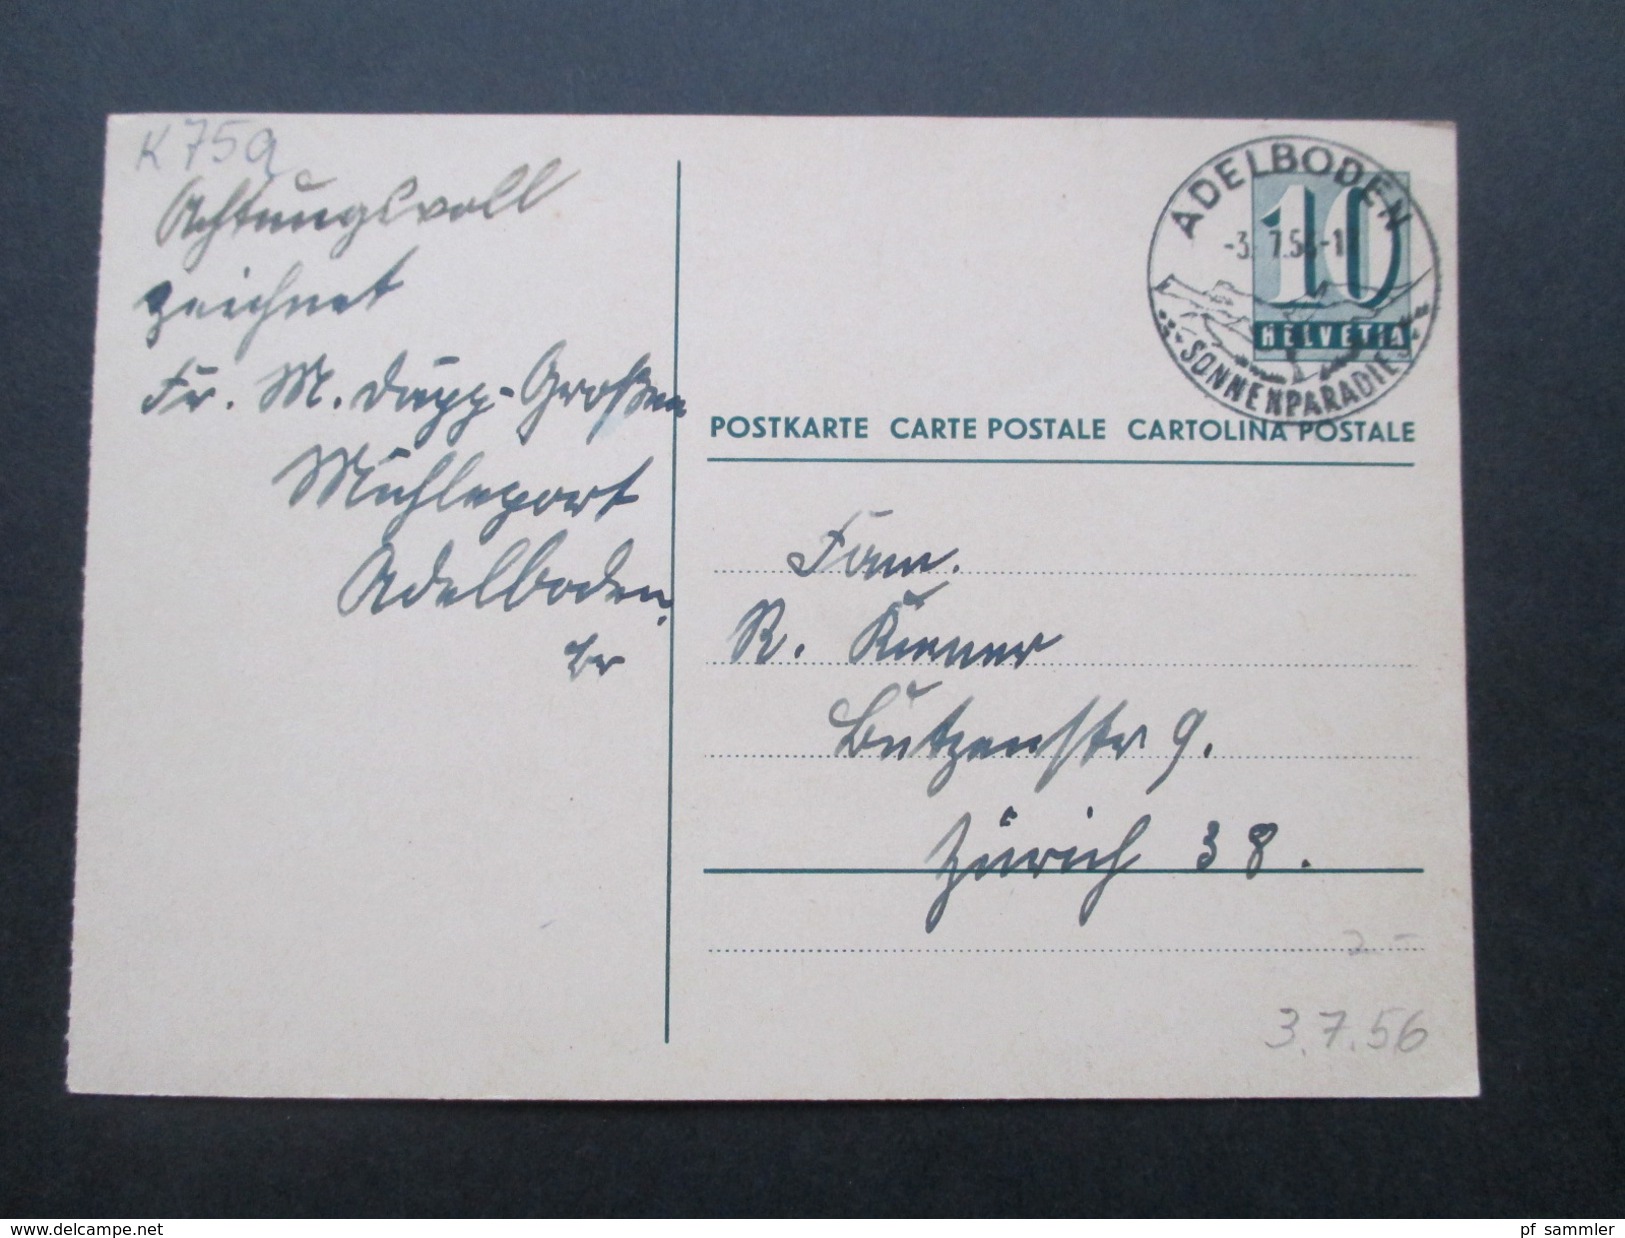 K 75a
Achtungsvoll
zeichnet
Fr. M. Dapp-Großen
Mühleport
Adelboden.
ADELBODEN
-3. 7.56-1
SONNENPARADIES
10
HELVETIA
POSTKARTE CARTE POSTALE CARTOLINA POSTALE
Fam.
R. Kiener
Butzenstr 9.
Zürich 38.
2.-
3.7.56
www.delcampe.net
pf_sammler